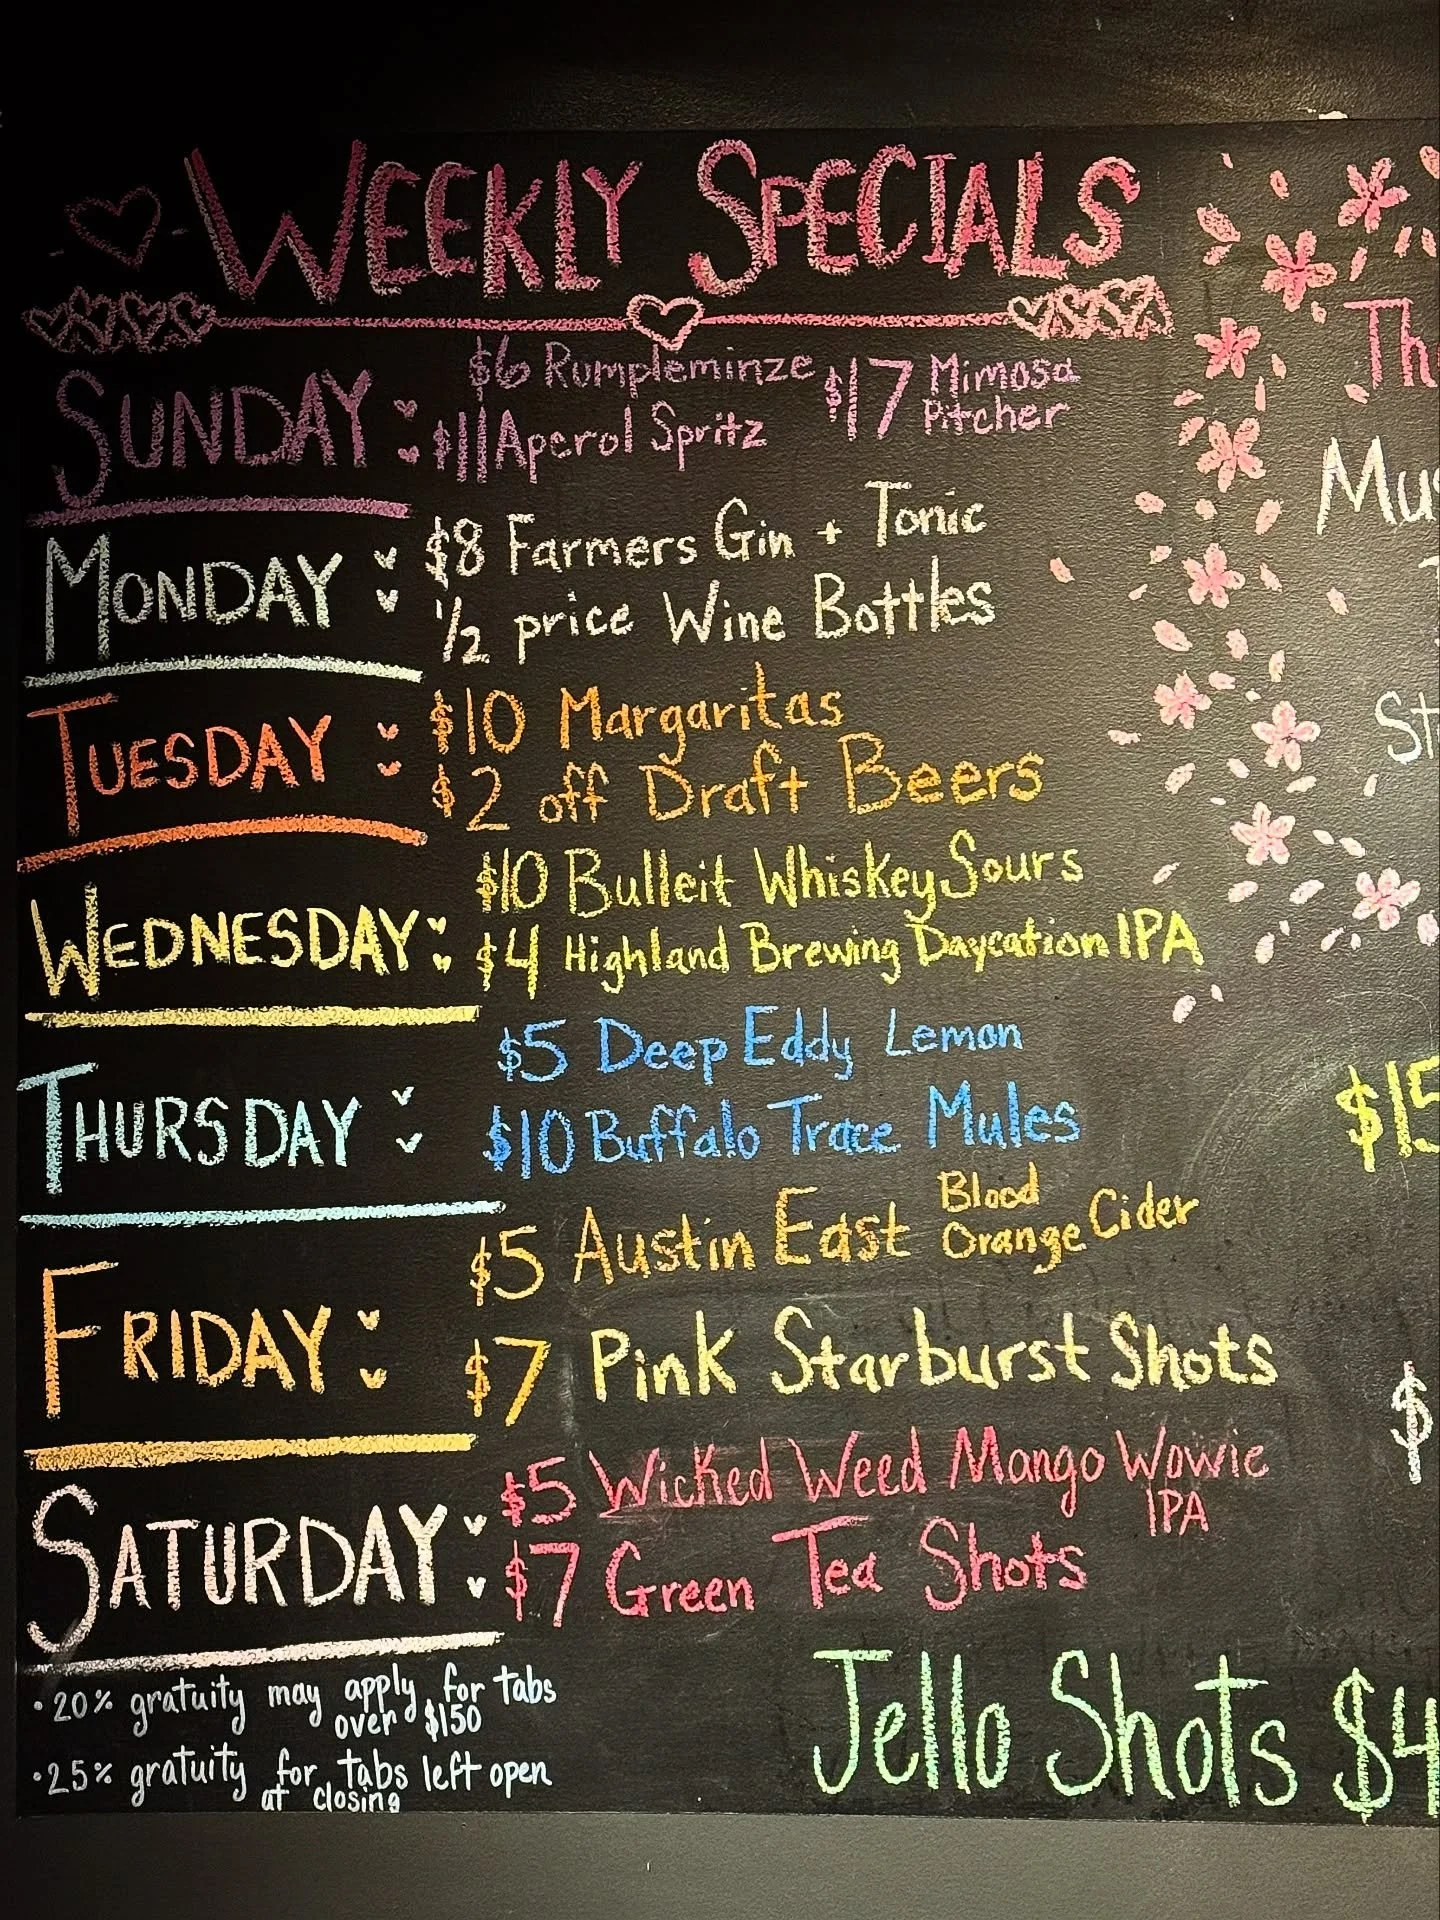 WEEKLY SPECIALS
SUNDAY: $6 Rumpleminze $17 Mimosa Pitcher
$11 Aperol Spritz
MONDAY: $8 Farmers Gin + Tonic
1/2 price Wine Bottles
TUESDAY: $10 Margaritas
$2 off Draft Beers
WEDNESDAY: $10 Bulleit Whiskey Sours
$4 Highland Brewing Daycation IPA
THURSDAY: $5 Deep Eddy Lemon
$10 Buffalo Trace Mules
FRIDAY: $5 Austin East Blood Orange Cider
$7 Pink Starburst Shots
SATURDAY: $5 Wicked Weed Mango Wowie IPA
$7 Green Tea Shots
• 20% gratuity may apply for tabs
over $150
• 25% gratuity for tabs left open
at closing
Jello Shots $4
Th
Mus
St
$15
$